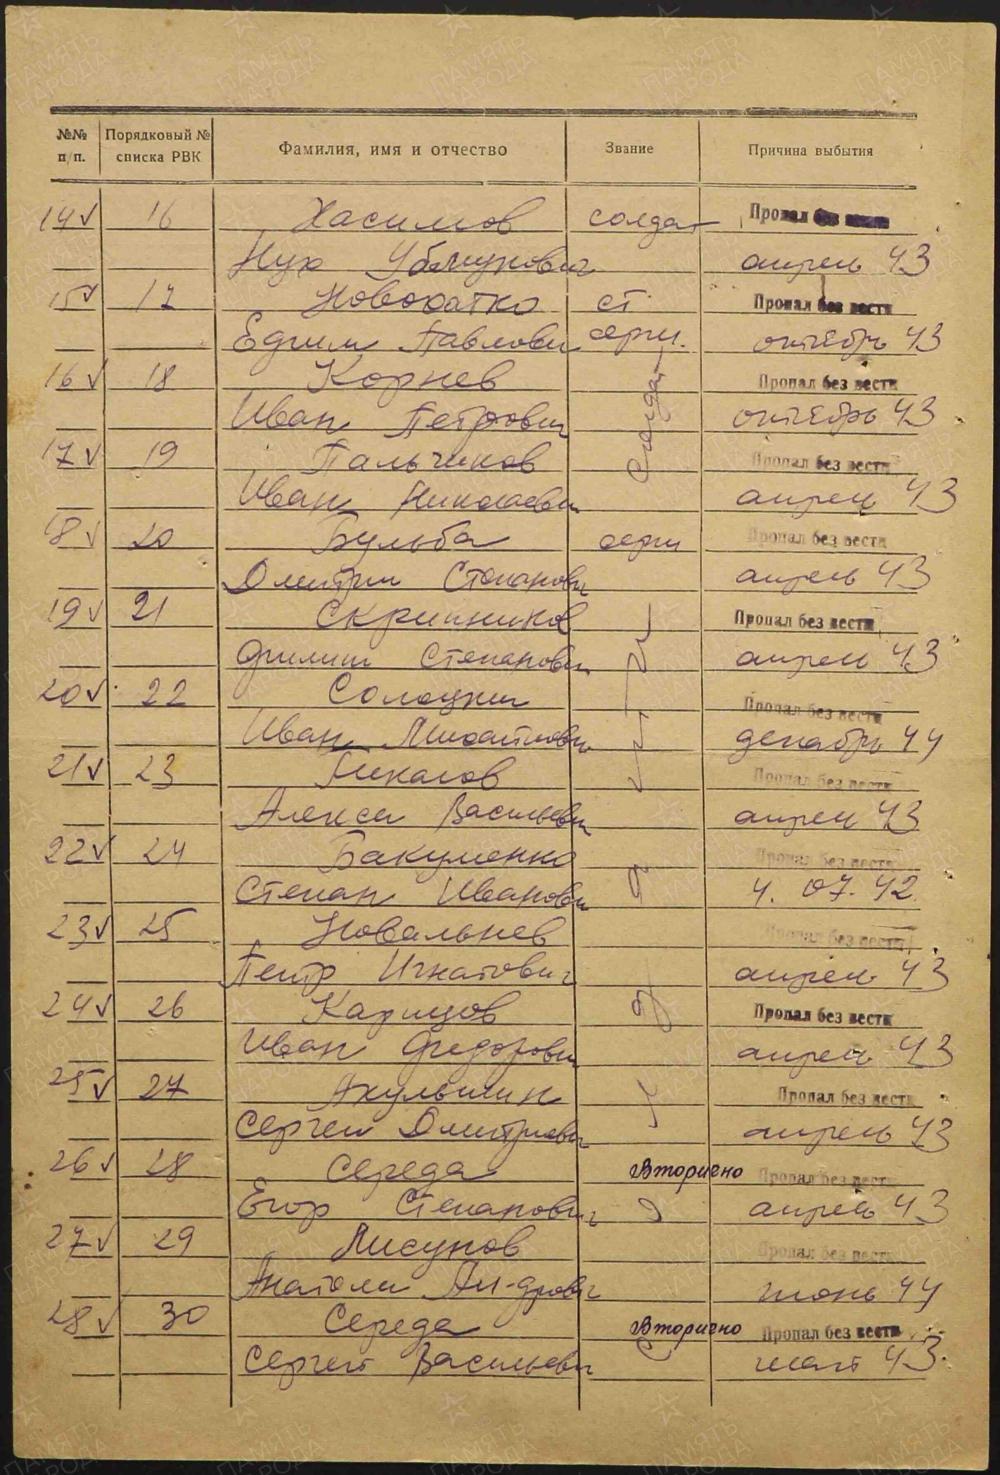 №№ п/п. Порядковый № списка РВК Фамилия, имя и отчество Звание Причина выбытия
14 16 Хасимов солдат Пропал без вести
Нух апрель 43
15 17 ст Пропал без вести
Ефим Павлович серж. октябрь 43
16 18 Корнев солдат Пропал без вести
Иван Петрович октябрь 43
17 19 Пальчиков Пропал без вести
Иван Николаевич апрель 43
18 20 Бульба серж Пропал без вести
Дмитрий Степанович апрель 43
19 21 Скрипников Пропал без вести
Филипп Степанович апрель 43
20 22 Пропал без вести
Иван Михайлович декабрь 44
21 23 Пропал без вести
Алексей Васильевич апрель 43
22 24 Бакуменко Пропал без вести
Степан Иванович 4. 07. 42
23 25 Ковальнев Пропал без вести
Петр Игнатович апрель 43
24 26 Пропал без вести
Иван Федорович апрель 43
25 27 Акульшин Пропал без вести
Сергей Дмитриевич апрель 43
26 28 Середа Вторично Пропал без вести
Егор Степанович апрель 43
27 29 Лисунов Пропал без вести
Анатолий июнь 44
28 30 Середа Вторично Пропал без вести
Сергей Васильевич март 43.